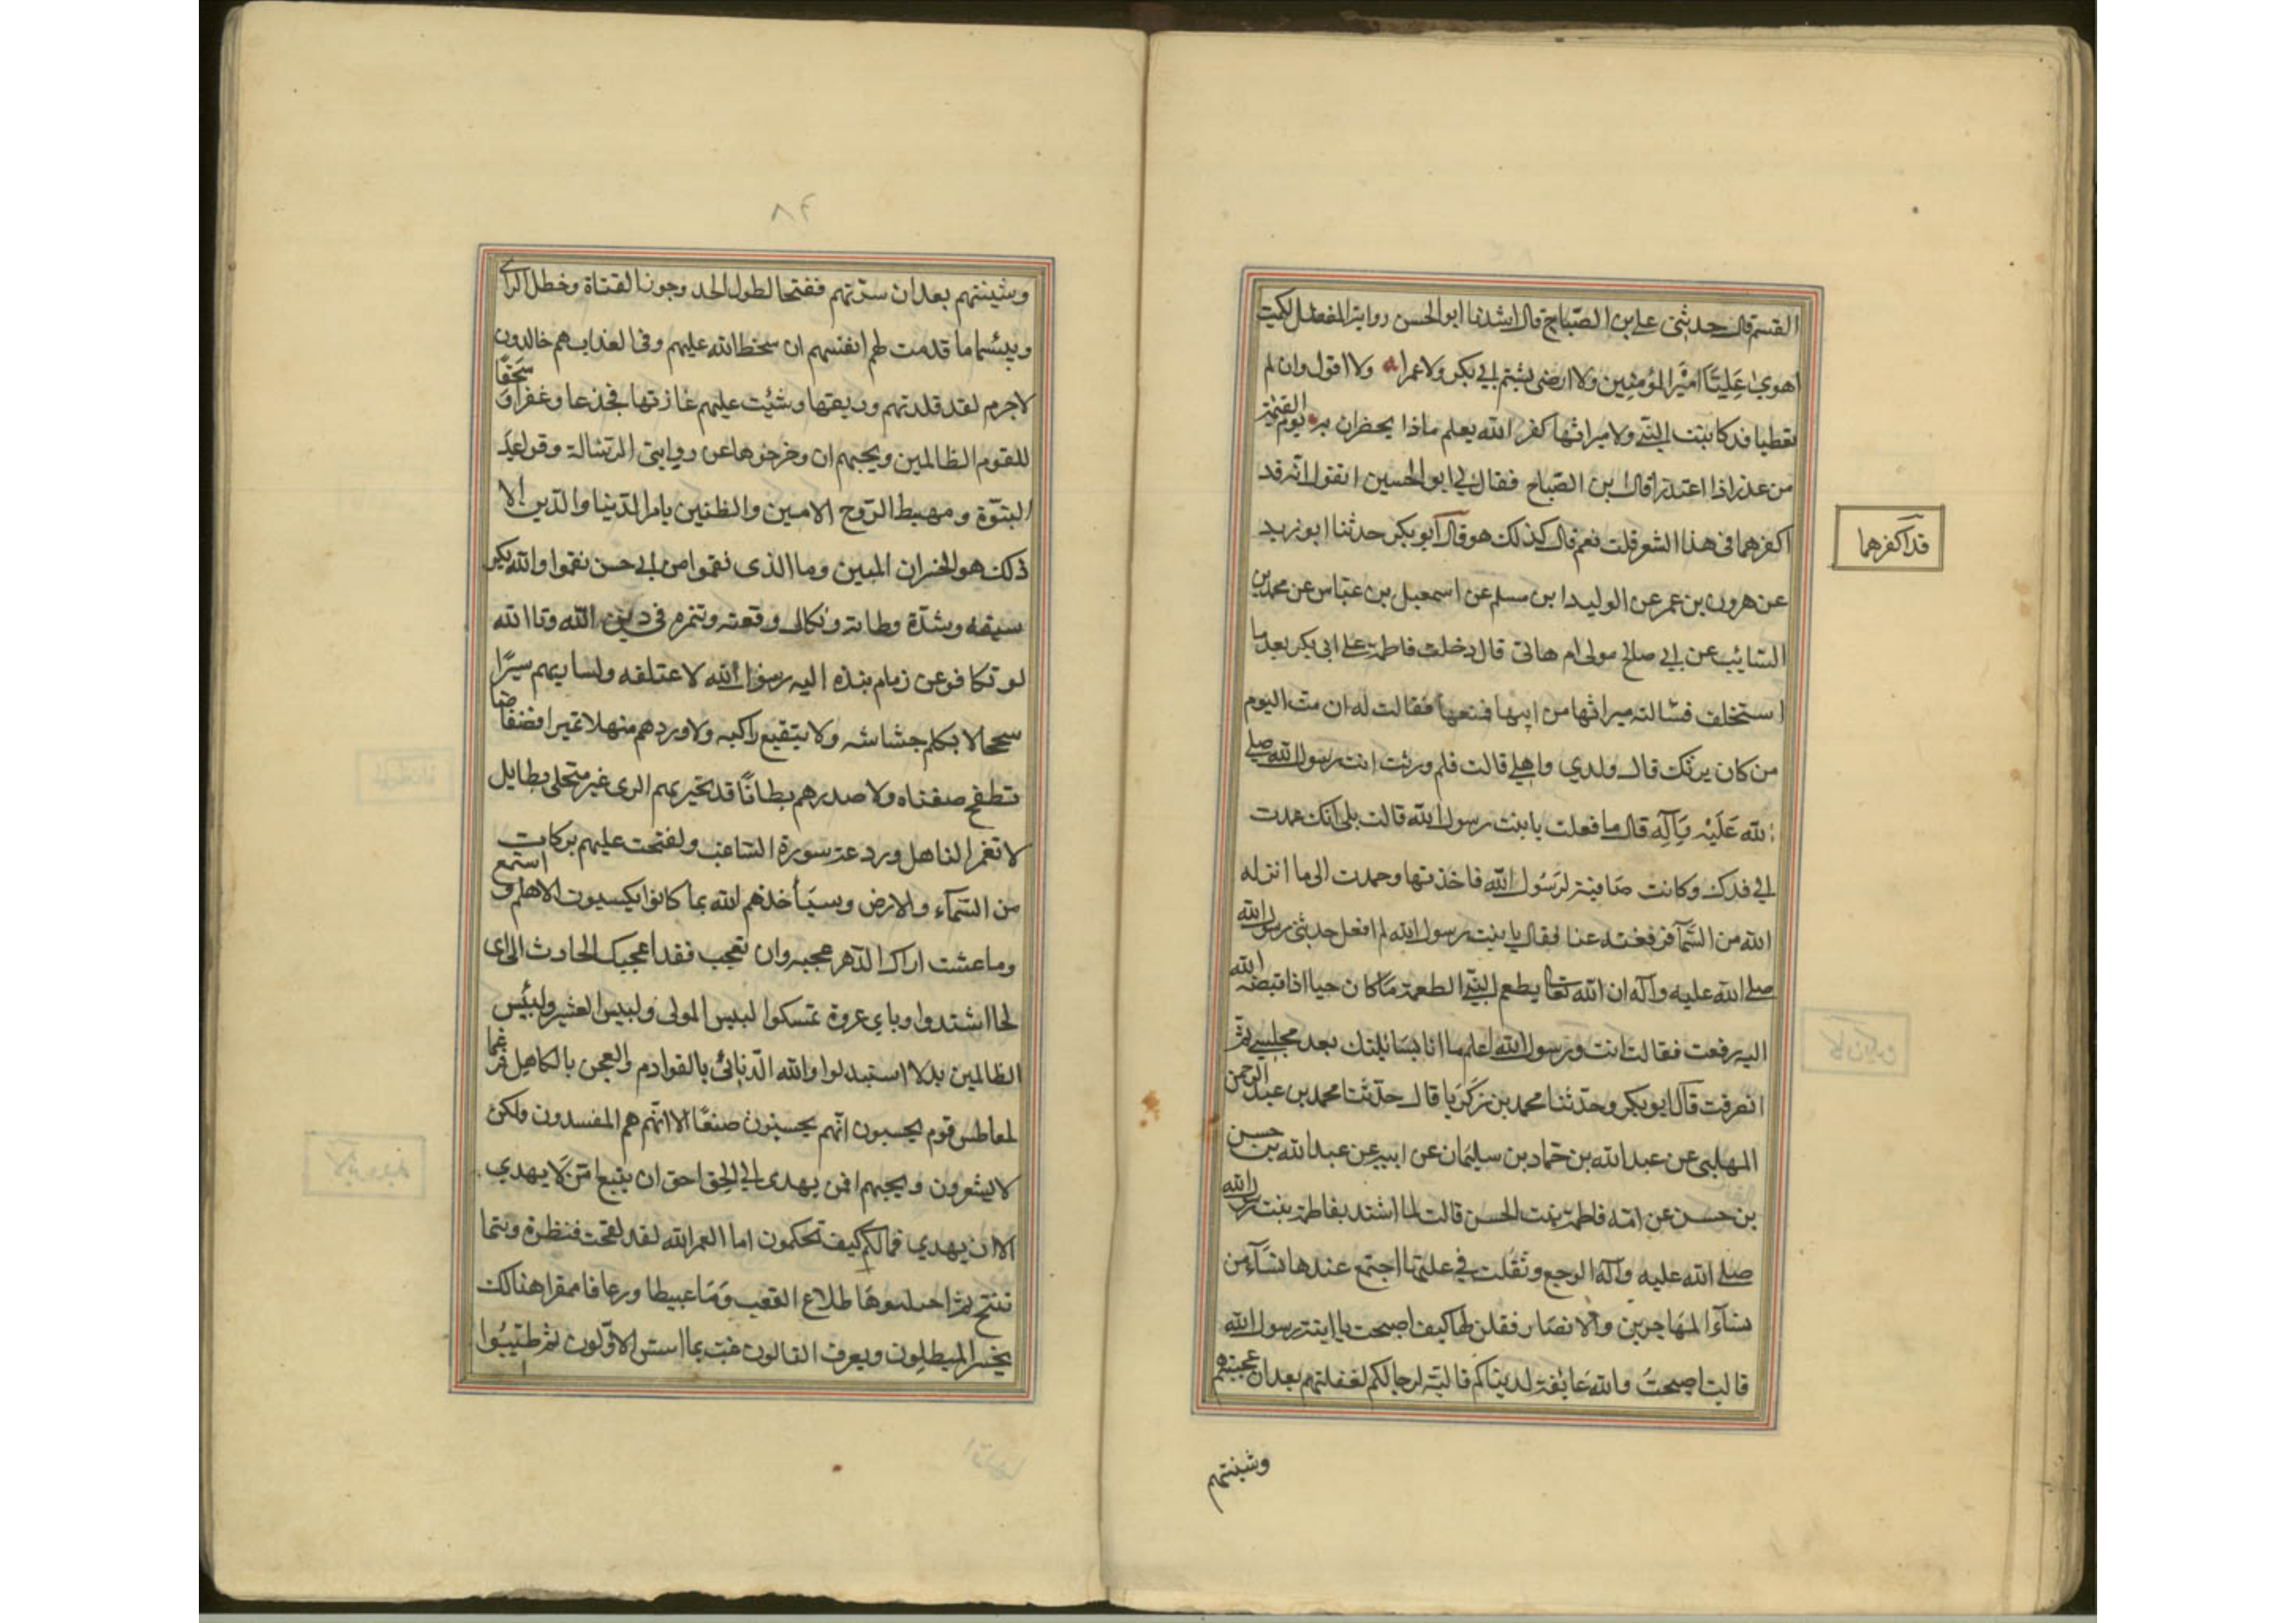 القسم قال حدثنى على بن الصباح قال انشدنا ابو الحسن رواية المفضل لكميت
اهوي عَلِيّا امير المؤمنين ولا ارضى بشتم ابي بكر ولا عمرا ولا اقول وان لم
يعطيا فدكا بنت النبي ولا ميراثها كفرا الله يعلم ماذا يحضران به يوم القيمة
من عذر اذا اعتذرا قال ابن الصباح فقال لي ابو الحسين اتقول انه قد
اكفرهما فى هذا الشعر قلت نعم قال كذلك هو قال ابو بكر حدثنا ابو زيد
قد اكفرهما
عن هرون بن عمر عن الوليد ابن مسلم عن اسمعيل بن عباس عن محمد بن
السائب عن ابي صالح مولى ام هانى قال دخلت فاطمة على ابى بكر بعد ما
استخلف فسالته ميراثها من ابيها فمنعها فقالت له ان مت اليوم
من كان يرثك قال ولدي واهلي قالت فلم ورثت انت رسول الله صلى
الله عَلَيْه وَآلِه قال ما فعلت يا بنت رسول الله قالت بلى انك عمدت
الي فدك وكانت صافية لرَسُول الله فاخذتها وعمدت الى ما انزله
الله من السَّمآ فرفعته عنا فقال يا بنت رسول الله لم افعل حدثنى رسول الله
صلى الله عليه وآله ان الله تعا يطعم النبيّ الطعمة مَا كان حيا اذا قبضه الله
اليه رفعت فقالت انت ورسول الله اعلم ما انا بسَائلتك بعد مجلسي ثم
انصرفت قال ابو بكر وحدّثنا محمد بن زكَرَيا قال حدّثنا محمد بن عبد الرحمن
المهلبى عن عبد الله بن حمّاد بن سليمان عن ابيه عن عبد الله بن حسن
بن حسن عن امّه فاطمة بنت الحسن قالت لما اشتد بفاطمة بنت رسول الله
صلى الله عليه وآله الوجع وثقلت في علتها اجتمع عندها نسَآء من
نسَآء المهَاجرين والانصَار فقلن لها كيف اصبحت يا ابنة رسول الله
قالت اصبحتُ والله عَائفة لدنيَاكم قاليَة لرجالكم لفظتهم بعد ان عجمتهم
وشينتهم
٨٤
وشينتهم بعد ان سبرتهم فقبحا لطول الحد وجون القناة وخطل الراى
وبئسما ما قدمت لهم انفسهم ان سخط الله عليهم وفى العذاب هم خالدون
لاجرم لقد قلدتهم وربقتها وشئت عليهم غازتها فجذعا وعقرا وَ سَحقًا
للقوم الظالمين ويحبهم ان وخرخوها عن رواسى الرسالة وقواعد
النبوّة ومهبط الرّوح الامين والظنين بامر الدّنيا والدّين الا
ذلك هو الخسران المبين وما الذى نقموا من ابي حسن نقموا والله نكير
سيفه وشدّة وطاته ونكال وقعته وتنمره فى دين الله وتا الله
لو تكافو عن زمام بنذه اليه رسول الله لاعتلقه ولساربهم سيرًا
سججالا يكلم حشاشه ولا يتتعتع راكبه ولاوردهم منهلا نميرا فضفاضا
تطفح ضفتاه ولا صدرهم بطانًا قد تحير بهم الرى غير متحلى بطايل
لا تغمر الناهل وردعة سورة الساغب ولفتحت عليهم بركات
من السّمآء والارض وسيَأخذهم الله بما كانوا يكسبون الا هلم و استمع
وما عشت اراك الدّهر عجبه وان تعجب فقد اعجبك الحادث الى اى
لجا استندوا وباي عروة تمسكوا لبئس المولى ولبئس العشير ولبئس
الظالمين بدلا استبدلوا والله الذنابى بالقوادم والعجز بالكاهل فرغما
لمعاطس قوم يحسبون انّهم يحسنون صنعًا الا انّهم هم المفسدون ولكن
لا يشعرون ويحبهم افمن يهدى الي الحق احق ان يتبع امّن لا يهدي
الا ان يهدي فمالكم كيف تحكمون اما لعمر الله لقد لقحت فنظرة ريثما
تنتج ثم احتلبوها طلاع القعب دَمَا عبيطا وزعافا ممقرا هنالك
يخسر المبطلون ويعرف التالون غب ما اسس الاوّلون ثم طيبُوا